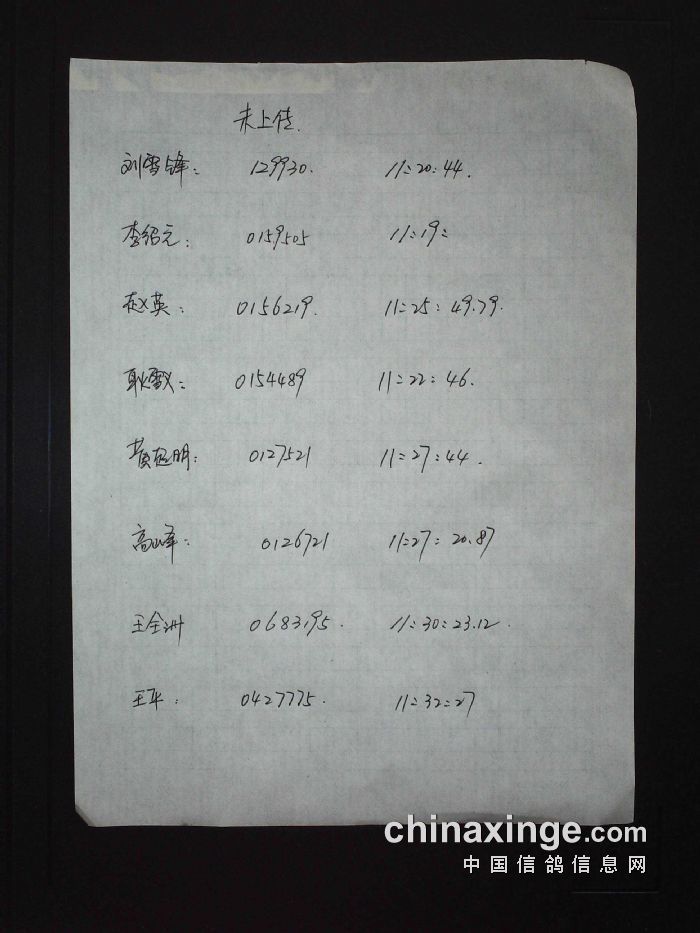 未上传.
刘雪峰: 129930. 11:20:44.
李绍元: 0159505 11:19:
赵英: 0156219. 11:25:49.79.
耿数: 0154489 11:22:46.
黄超明: 0127521 11:27:44.
高峰: 0126721 11:27:20.87
王全洲 0683195. 11:30:23.12.
王平: 0427775. 11:32:27
chinaxinge.com
中国信鸽信息网